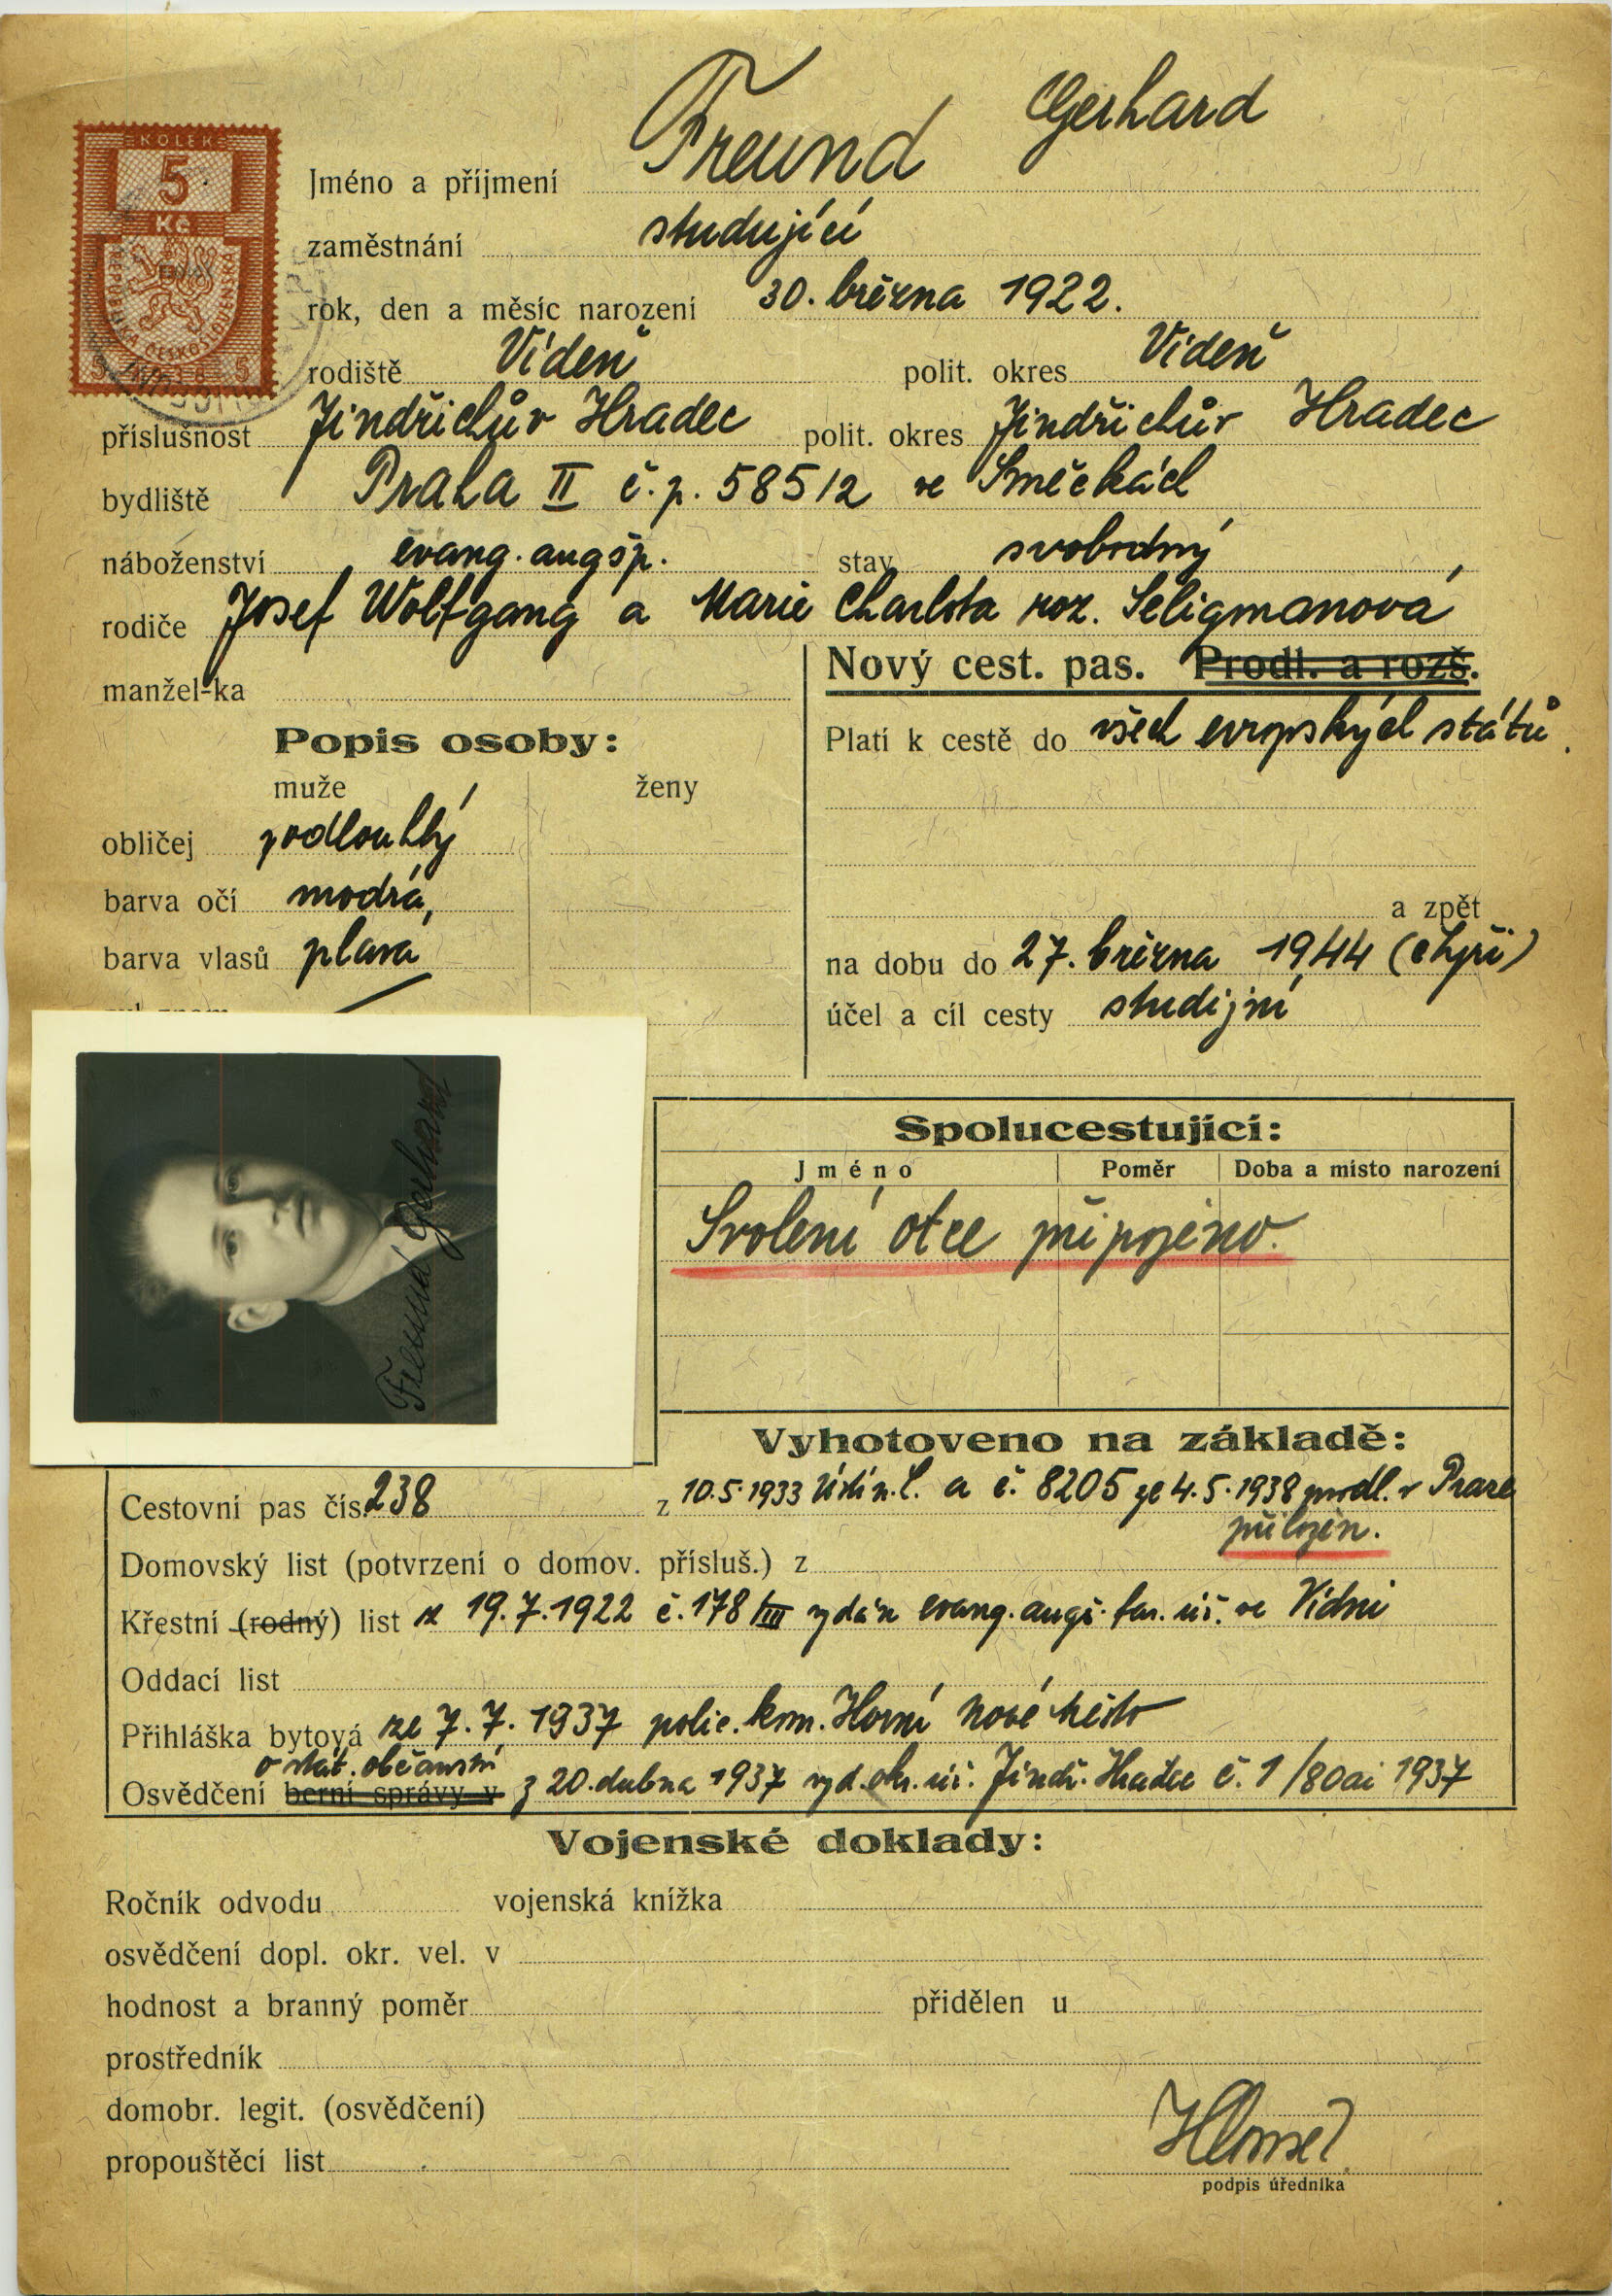 KOLEK
5
Kč
REPUBLIKA ČESKOSLOVENSKÁ
5 5
Jméno a příjmení Freund Gerhard
zaměstnání studující
rok, den a měsíc narození 30. března 1922.
rodiště Vídeň polit. okres Vídeň
příslušnost Jindřichův Hradec polit. okres Jindřichův Hradec
bydliště Praha II č.p. 585/2 ve Smečkách
náboženství evang. augšp. stav svobodný
rodiče Josef Wolfgang a Marie Charlota roz. Seligmanová
manžel-ka
Nový cest. pas. Prodl. a rozš.
Popis osoby:
muže ženy
obličej podlouhlý
barva očí modrá,
barva vlasů plavá
Platí k cestě do všech evropských států.
a zpět
na dobu do 27. března 1944 (čtyři)
účel a cíl cesty studijní
Freund Gerhard
Spolucestující:
Jméno Poměr Doba a místo narození
Svolení otce připojeno.
Vyhotoveno na základě:
Cestovní pas čís. 238 z 10.5.1933 a č. 8205 ze 4.5.1938 prodl. v Praze
přiložen.
Domovský list (potvrzení o domov. přísluš.) z
Křestní (rodný) list z 19.7.1922 č. 178/III vydán evang. augš. far. úř. ve Vídni
Oddací list
Přihláška bytová ze 7.7.1937 polic. kom. Horní Nové Město
o stát. občanství
Osvědčení berní správy v z 20. dubna 1937 vyd. okr. úř. Jindř. Hradec č. 1/80ai 1937
Vojenské doklady:
Ročník odvodu vojenská knížka
osvědčení dopl. okr. vel. v
hodnost a branný poměr přidělen u
prostředník
domobr. legit. (osvědčení)
propouštěcí list
podpis úředníka